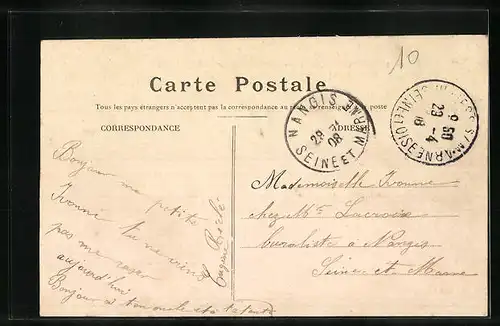 10
Carte Postale
Tous les pays étrangers n'acceptent pas la correspondance au poste
CORRESPONDANCE
ADRESSE
NANGIS
28 08
SEINE ET MARNE
9 50
23 -4
Bonjour ma petite
Ivonne tu ne viens
pas me
aujourd'hui
Bonjour à ton oncle et à ta tante
Mademoiselle Ivonne
chez Mr Lacroix
buraliste à Nangis
Seine-et-Marne